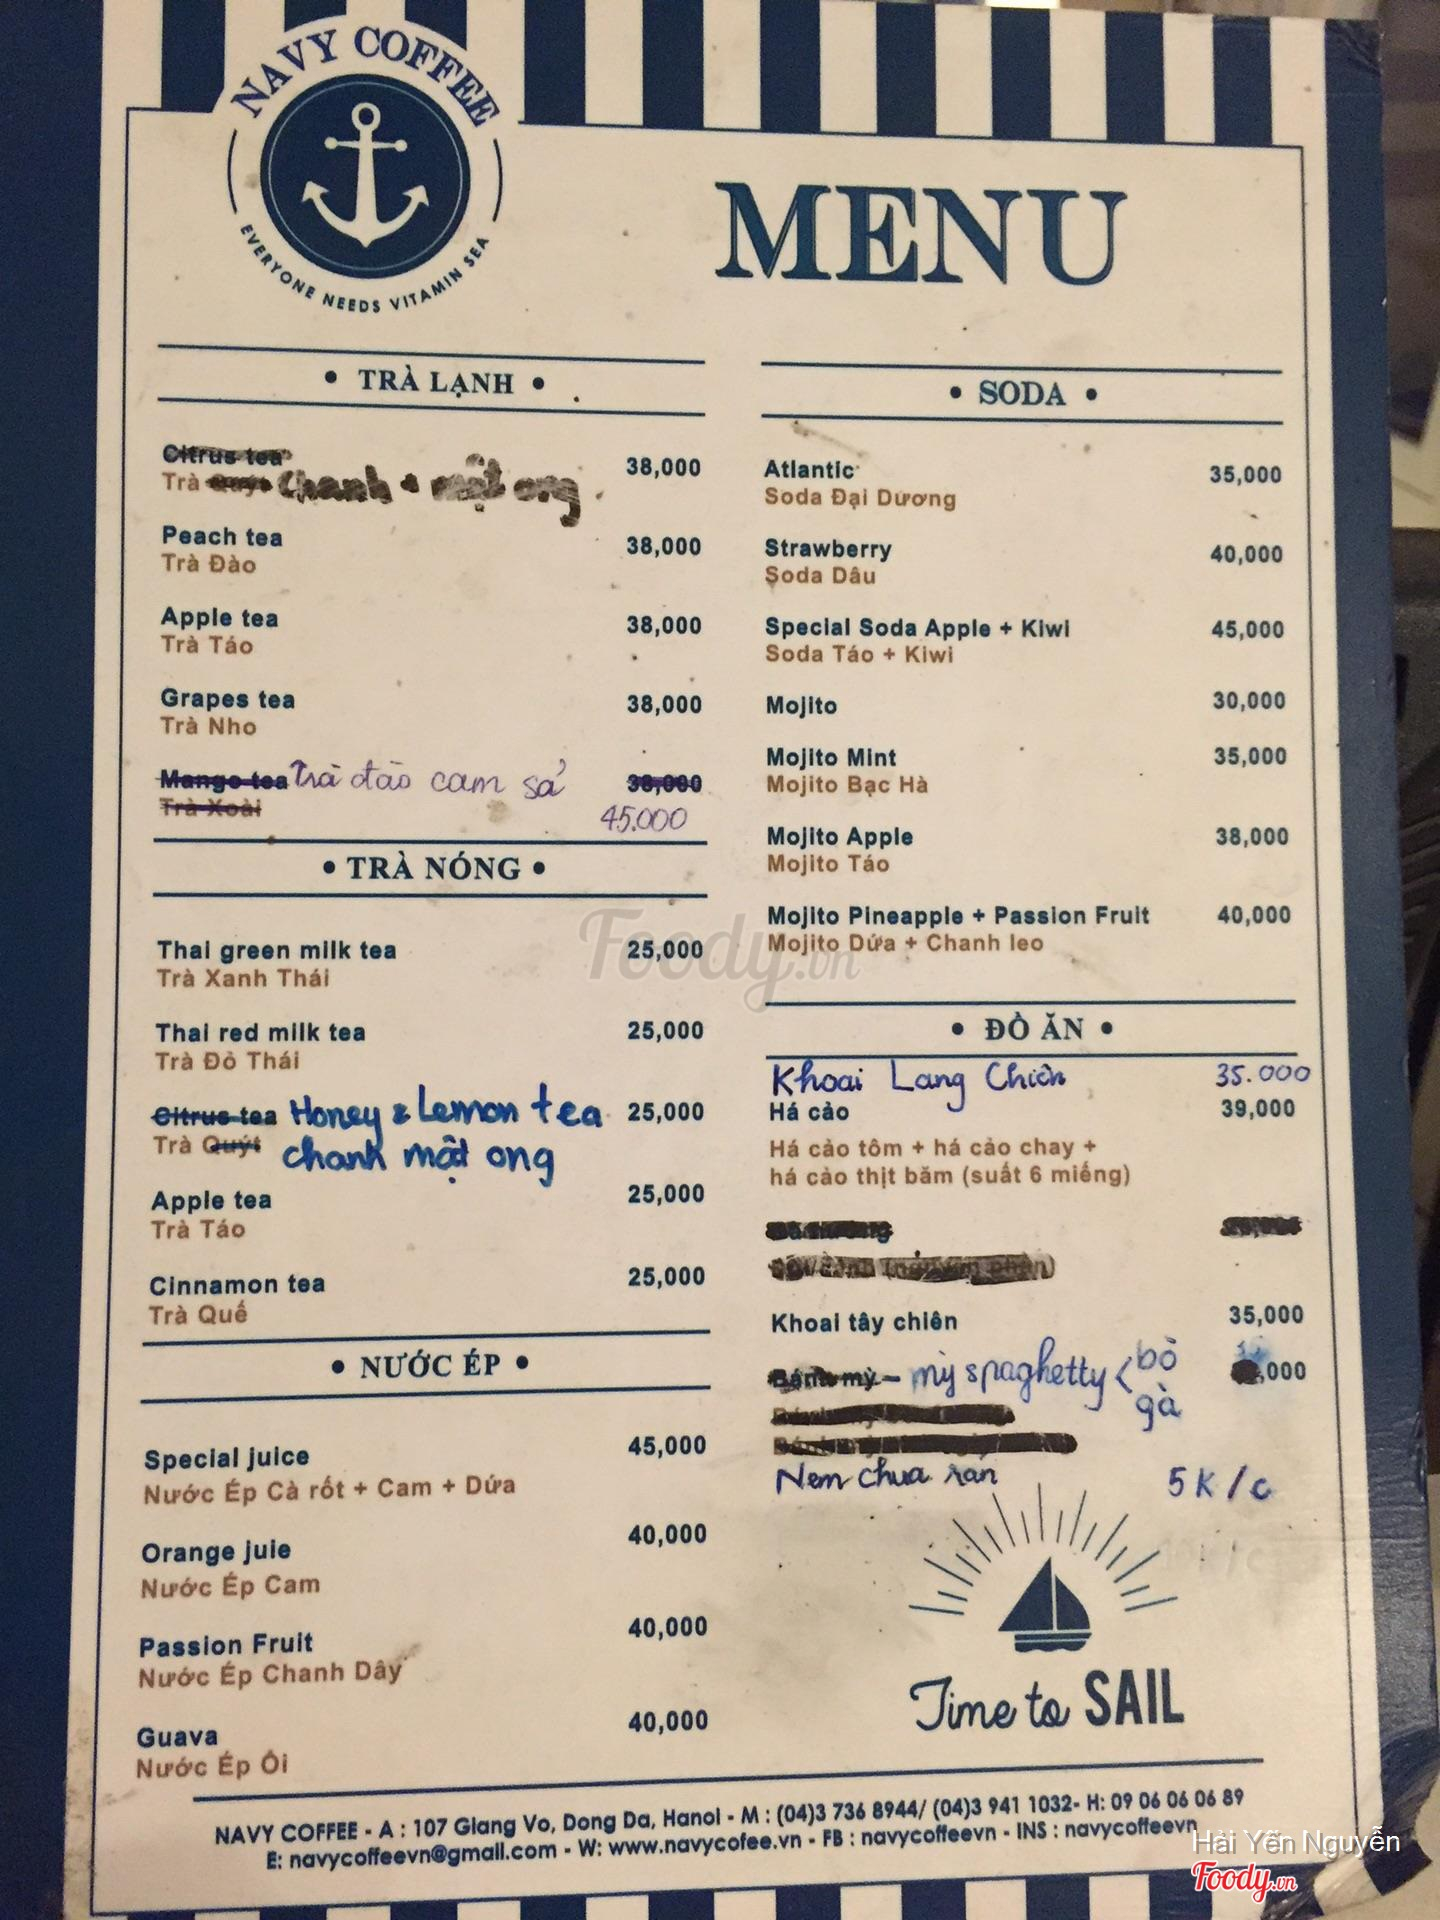 NAVY COFFEE
EVERYONE NEEDS VITAMIN SEA
MENU
• TRÀ LẠNH •
Citrus tea 38,000
Trà Quýt Chanh + mật ong
Peach tea 38,000
Trà Đào
Apple tea 38,000
Trà Táo
Grapes tea 38,000
Trà Nho
Mango tea Trà đào cam sả 38,000
Trà Xoài 45.000
• TRÀ NÓNG •
Thai green milk tea 25,000
Trà Xanh Thái
Thai red milk tea 25,000
Trà Đỏ Thái
Citrus tea Honey & Lemon tea 25,000
Trà Quýt chanh mật ong
Apple tea 25,000
Trà Táo
Cinnamon tea 25,000
Trà Quế
• NƯỚC ÉP •
Special juice 45,000
Nước Ép Cà rốt + Cam + Dứa
Orange juie 40,000
Nước Ép Cam
Passion Fruit 40,000
Nước Ép Chanh Dây
Guava 40,000
Nước Ép Ổi
• SODA •
Atlantic 35,000
Soda Đại Dương
Strawberry 40,000
Soda Dâu
Special Soda Apple + Kiwi 45,000
Soda Táo + Kiwi
Mojito 30,000
Mojito Mint 35,000
Mojito Bạc Hà
Mojito Apple 38,000
Mojito Táo
Mojito Pineapple + Passion Fruit 40,000
Mojito Dứa + Chanh leo
• ĐỒ ĂN •
Khoai Lang Chiên 35.000
Há cảo 39,000
Há cảo tôm + há cảo chay +
há cảo thịt băm (suất 6 miếng)
Khoai tây chiên 35,000
Bánh mỳ - mỳ spaghetty < bò ,000
gà
Nem chua rán 5K/c
Time to SAIL
NAVY COFFEE - A : 107 Giang Vo, Dong Da, Hanoi - M : (04)3 736 8944/ (04)3 941 1032- H: 09 06 06 06 89
E: navycoffeevn@gmail.com - W: www.navycofee.vn - FB : navycoffeevn - INS : navycoffeevn
Foody.vn
Hải Yến Nguyễn
Foody.vn